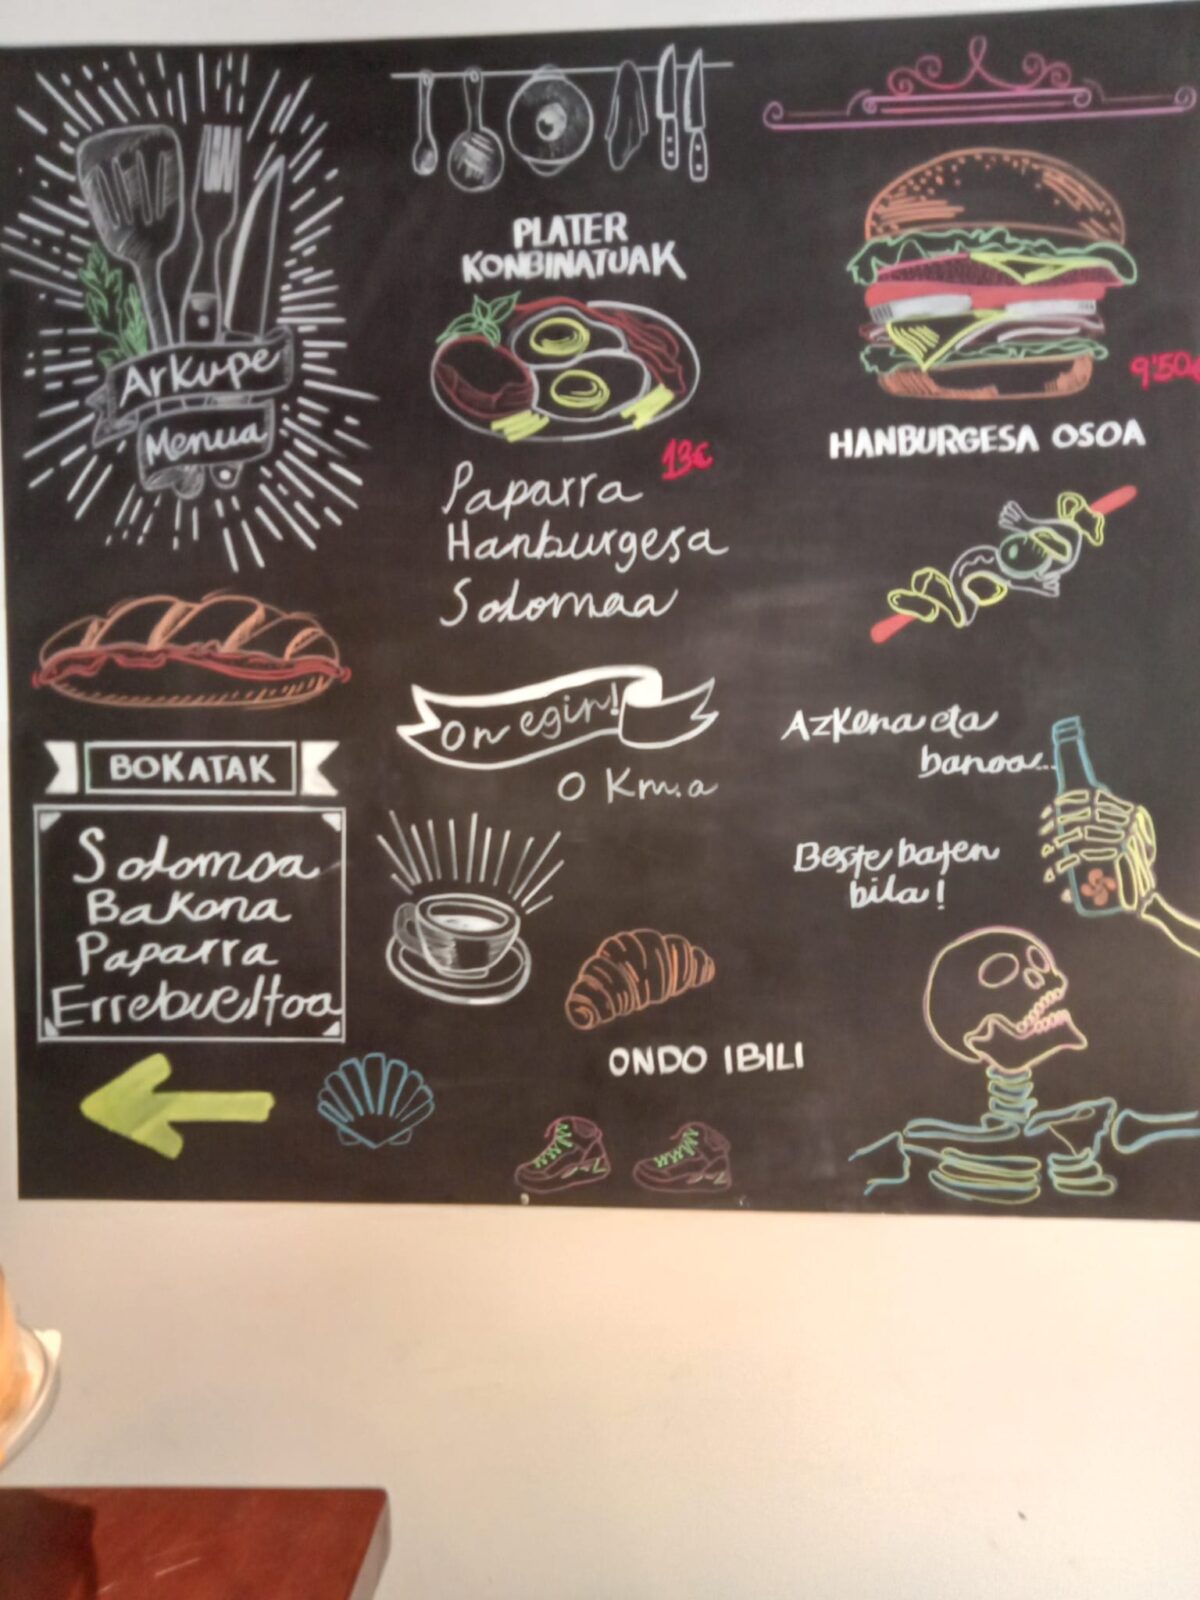 Arkupe
Menua
PLATER
KONBINATUAK
13€
Paparra
Hanburgesa
Solomaa
9'50€
HANBURGESA OSOA
BOKATAK
Solomoa
Bakona
Paparra
Errebueltoa
On egin!
0 Km.a
Azkena eta
banoa...
Beste baten
bila!
ONDO IBILI